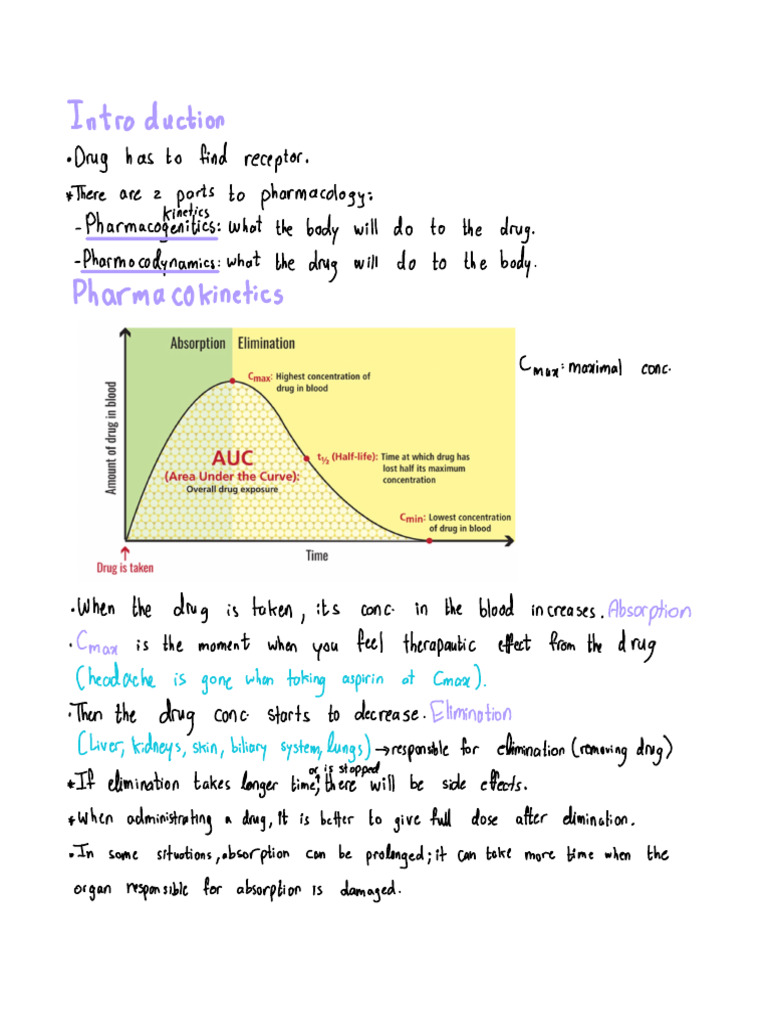 Introduction
•Drug has to find receptor.
*There are 2 parts to pharmacology:
kinetics
-Pharmacogenitics: what the body will do to the drug.
-Pharmocodynamics: what the drug will do to the body.
Pharmacokinetics
Absorption Elimination
Cmax: Highest concentration of
drug in blood
Cmax: maximal conc.
Amount of drug in blood
AUC
(Area Under the Curve):
Overall drug exposure
t½ (Half-life): Time at which drug has
lost half its maximum
concentration
Cmin: Lowest concentration
of drug in blood
Time
Drug is taken
•When the drug is taken, its conc. in the blood increases. Absorption
•Cmax is the moment when you feel therapautic effect from the drug
(headache is gone when taking aspirin at Cmax).
•Then the drug conc. starts to decrease. Elimination
(Liver, kidneys, skin, biliary system, lungs) →responsible for elimination (removing drug)
or is stopped
*If elimination takes longer time, there will be side effects.
*When administrating a drug, it is better to give full dose after elimination.
•In some situations, absorption can be prolonged; it can take more time when the
organ responsible for absorption is damaged.